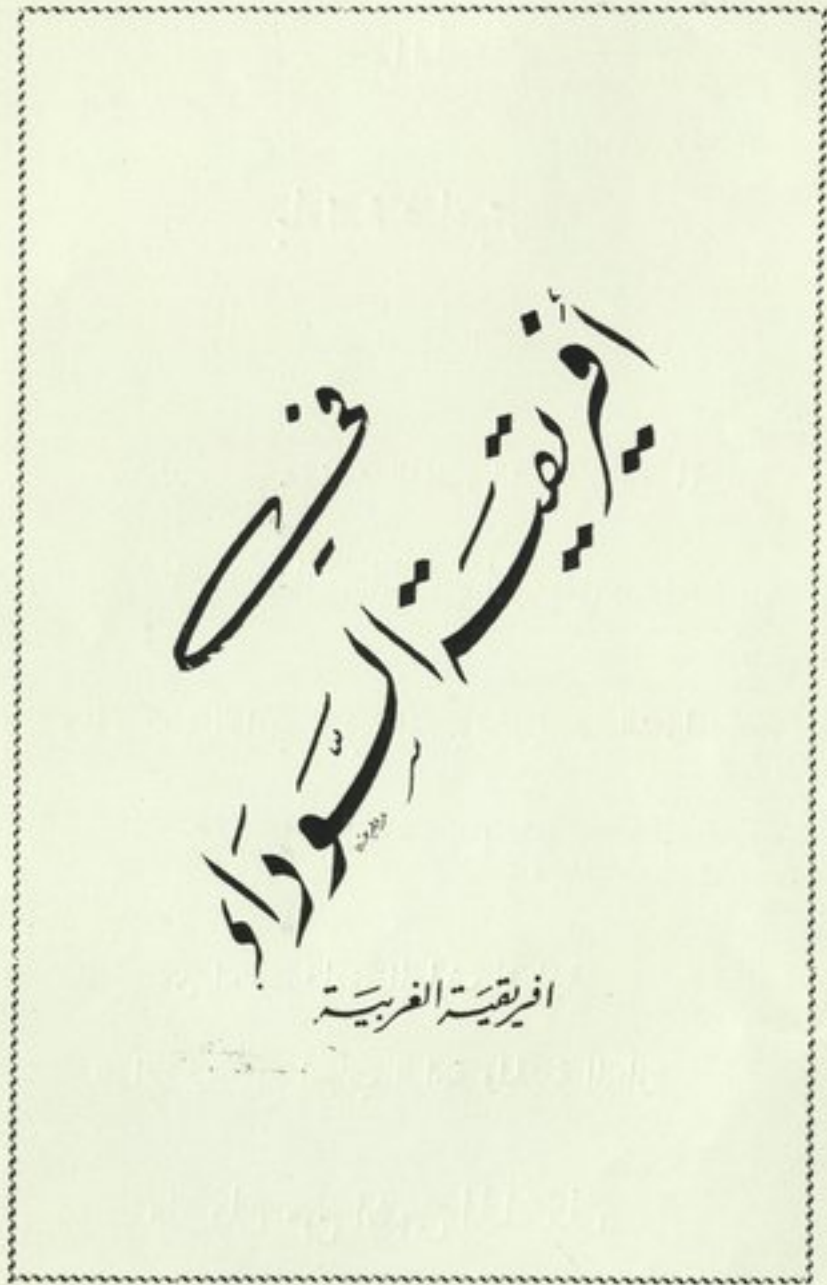 في
أفريقية السّوداء
افريقيَة الغربيَة